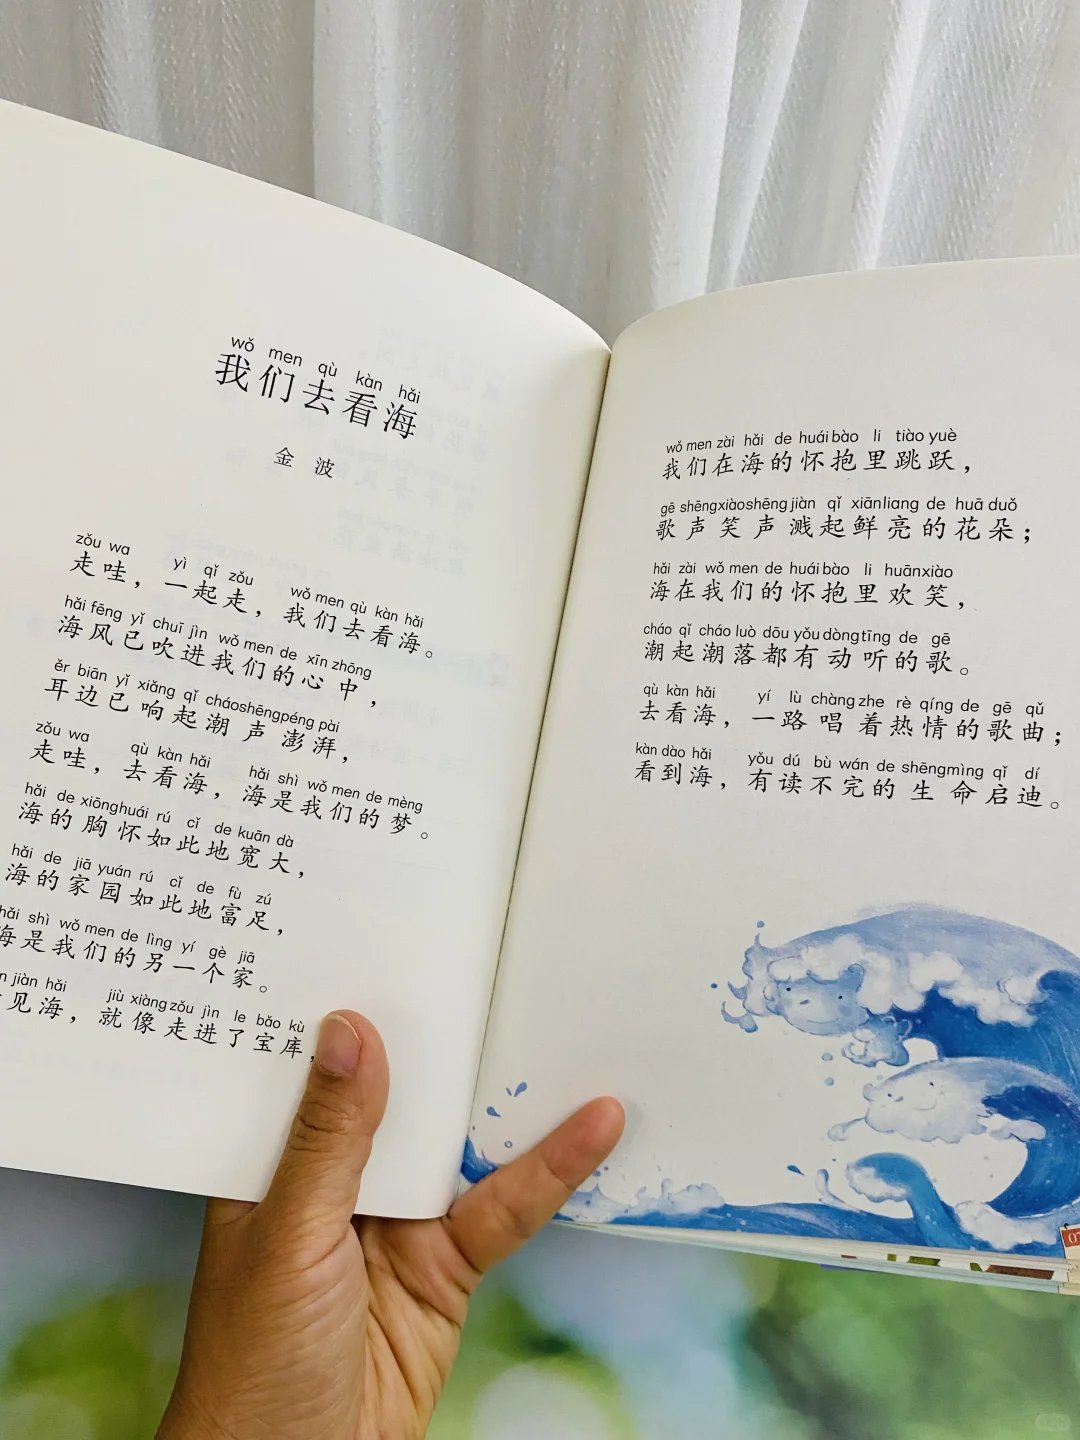 wǒ men qù kàn hǎi
我们去看海
金波
zǒu wa yì qǐ zǒu wǒ men qù kàn hǎi
走哇，一起走，我们去看海。
hǎi fēng yǐ chuī jìn wǒ men de xīn zhōng
海风已吹进我们的心中，
ěr biān yǐ xiǎng qǐ cháo shēng péng pài
耳边已响起潮声澎湃，
zǒu wa qù kàn hǎi hǎi shì wǒ men de mèng
走哇，去看海，海是我们的梦。
hǎi de xiōng huái rú cǐ de kuān dà
海的胸怀如此地宽大，
hǎi de jiā yuán rú cǐ de fù zú
海的家园如此地富足，
hǎi shì wǒ men de lìng yí gè jiā
海是我们的另一个家。
jiàn hǎi jiù xiàng zǒu jìn le bǎo kù
见海，就像走进了宝库，
wǒ men zài hǎi de huái bào li tiào yuè
我们在海的怀抱里跳跃，
gē shēng xiào shēng jiàn qǐ xiān liang de huā duǒ
歌声笑声溅起鲜亮的花朵；
hǎi zài wǒ men de huái bào li huān xiào
海在我们的怀抱里欢笑，
cháo qǐ cháo luò dōu yǒu dòng tīng de gē
潮起潮落都有动听的歌。
qù kàn hǎi yí lù chàng zhe rè qíng de gē qǔ
去看海，一路唱着热情的歌曲；
kàn dào hǎi yǒu dú bù wán de shēng mìng qǐ dí
看到海，有读不完的生命启迪。